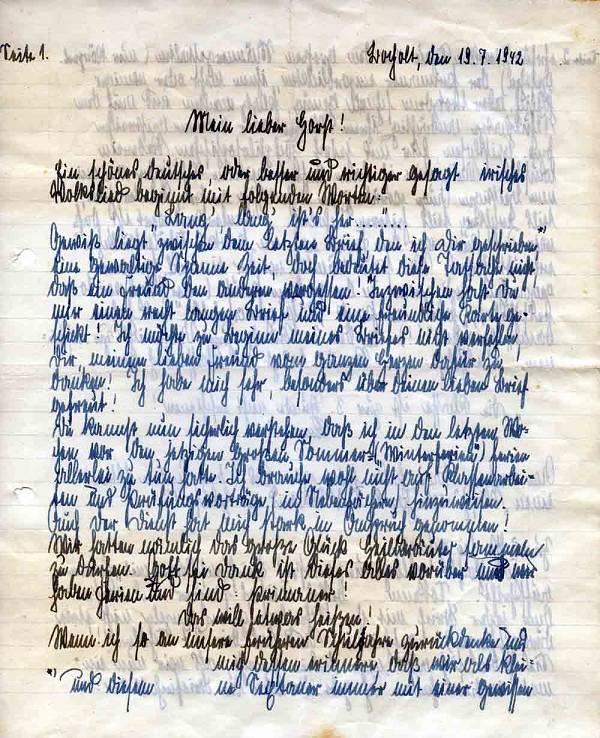 Seite 1.
Bocholt, den 19.7.1942
Mein lieber Horst!
Ein schönes deutsches, oder besser und richtiger gesagt irisches
Volkslied beginnt mit folgenden Worten:
"Lang', lang' ist's her....."
Gewiß liegt zwischen dem letzten Brief, den ich Dir geschrieben*)
eine gewaltige Spanne Zeit, doch bedeutet diese Tatsache nicht,
daß ein Freund den anderen vergessen! Inzwischen hast Du
mir einen recht langen Brief und eine freundliche Karte ge-
schickt! Ich möchte zu Beginn meines Briefes nicht verfehlen,
Dir, meinem lieben Freund vom ganzen Herzen dafür zu
danken! Ich habe mich sehr, besonders über Deinen lieben Brief
gefreut!
Du kannst nun sicherlich verstehen, daß ich in den letzten Wo-
chen vor den jetzigen großen Sommer- (Winterferien) ferien
allerlei zu tun hatte. Ich brauche wohl nicht auf Klassenarbei-
ten und Prüfungsvorträge in Nebenfächern hinzuweisen.
Auch der Dienst hat mich stark in Anspruch genommen!
Wir hatten nämlich das große Glück Heilkräuter sammeln
zu dürfen. Gott sei Dank ist dieses alles vorüber und wir
haben Ferien und sind Primaner!
Das will etwas heißen!
Wenn ich so an unsere früheren Schuljahre zurückdenke und
mich dessen erinnere, daß wir als klei-
*) und diesem
ne Sextaner immer mit einer gewissen